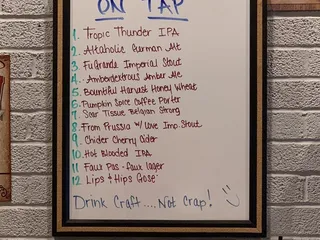 ON TAP
1. Tropic Thunder IPA
2. Altaholic German Alt
3. Fu Grande Imperial Stout
4. Amberdextrous Amber Ale
5. Bountiful Harvest Honey Wheat
6. Pumpkin Spice Coffee Porter
7. Scar Tissue Belgian Strong
8. From Prussia w/ Love Imp. Stout
9. Chider Cherry Cider
10. Hot Blooded IRA
11. Faux Pas - faux lager
12. Lips + Hips Gose
Drink Craft .... Not Crap!